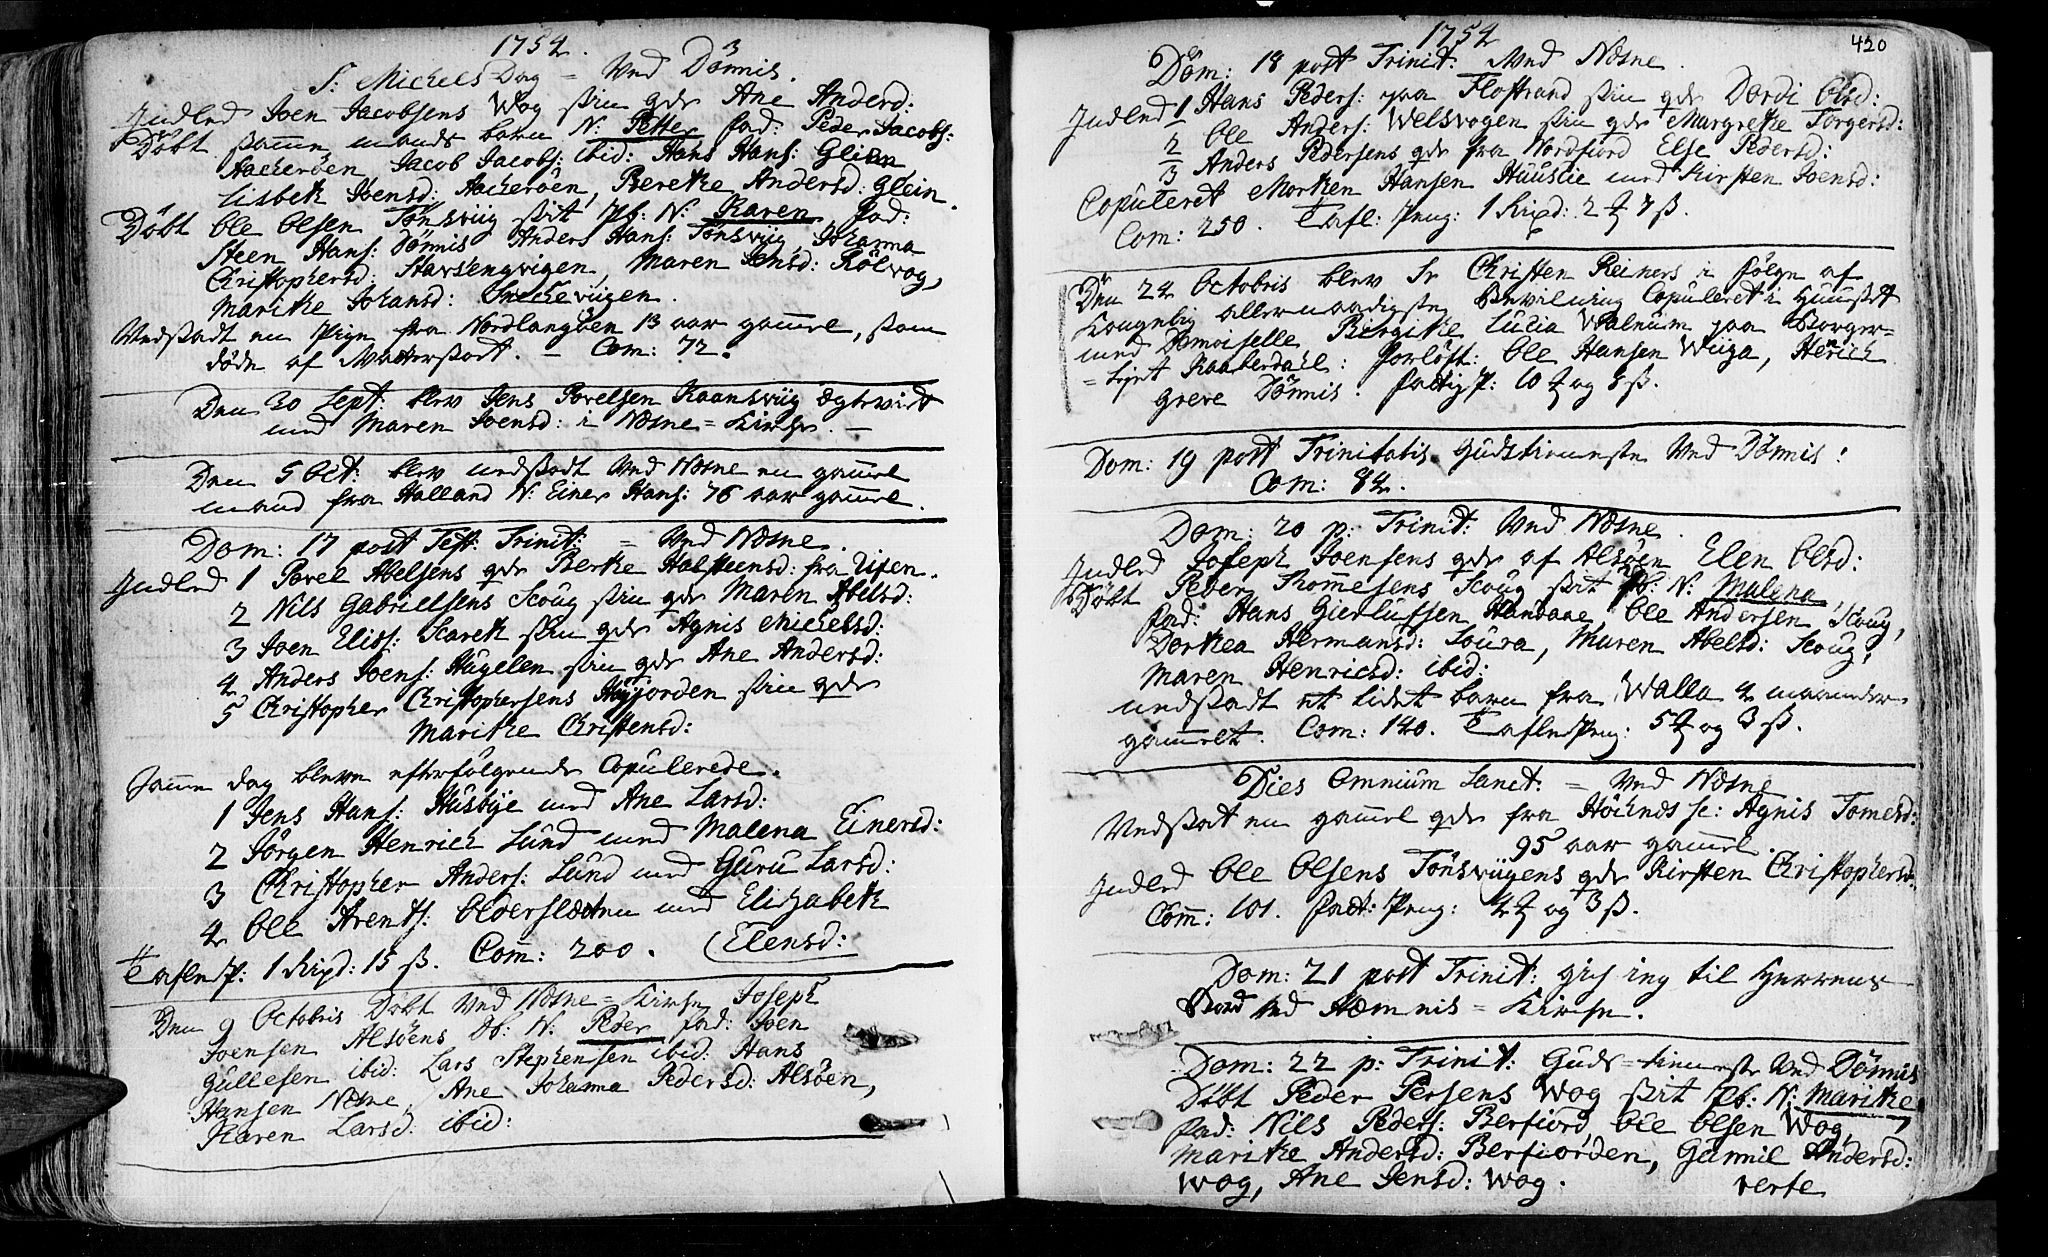 1754.
S. Michels Dag = Ved Dönnis.
Indled Joen Jacobsens Wog sin qde Ane Anders:
Döbt samme mands barn N: Petter fad: Peder Jacobs:
Aacheröen Jacob Jacobs: ibid: Hans Hans: Glein
Lisbeth Joensd: Aacheröen, Berethe Andersd: Glein.
Döbt Ole Olsen Tönsviig sit Pb: N: Karen fad:
Steen Hans: Dönnis Anders Hans: Tönsviig, Johanna
Christophersd: Stavsengvigen, Maren Jensd: Rölvog,
Marithe Johansd:
Nedsadt en Pige fra Nordlangöen 13 aar gammel, som
döde af Moderssodt. – Com: 72.
Den 30 Sept: blev Jens Povelsen Raansviig Egteviet
med Maren Joensd: i Nesne = Kirche. –
Den 5 Oct: blev nedsadt Ved Nesne en gammel
mand fra Halland N: Einer Hans: 76 aar gammel.
Dom: 17 post Fest: Trinit: = Ved Nesne.
Indled 1 Povel Abelsens qde Berthe Halsteensd: fra
2 Nils Gabrielsens Scoug sin qde Maren Abelsd:
3 Joen Eliss: Scareth sin qde Agnis Michelsd:
4 Anders Joens: Hugelen sin qde Ane Andersd:
5 Christopher Christophersens sin qde
Marithe Christensd:
Samme dag bleve efterfölgende Copulerede.
1 Jens Hans: Husbye med Ane Larsd:
2 Jörgen Henrich Lund med Malena Einersd:
3 Christopher Anders: Lund med Guru Larsd:
4 Ole Arents: Oldersletten med Elizabeth
Tafle P: 1 Rixd: 15 ß. Com: 200. (Elensd:
Den 9 Octobris Döbt Ved Nesne = Kirche Joseph
Joensen Alsöens Db: N: Peder fad: Joen
Gullesen ibid: Lars Stephensen ibid: Hans
Hansen Nesne, Ane Johanna Pedersd: Alsöen,
Karen Larsd: ibid:
1754
420
Dom: 18 post Trinit: Ved Nesne.
Indled 1 Hans Peders: paa Flostrand sin qde Dordi Olsd:
2 Ole Anders: Welsvogen sin qde Margrethe Torgersd:
3 Anders Pedersens qde fra Nordfiord Else Pedersd:
Copuleret Morten Hansen med Kirsten Joensd:
Com: 250. Tafl: Peng: 1 Rixd: 2 ₰ 7 ß.
Den 24 Octobris blev Sr Christen Reiners i fölge af
Kongelig allernaadigste Bevilning Copuleret i Huuset
med Demoiselle Birgithe Lucia Walnum paa Borger-
=tejet Raaberdahl: forlöft: Ole Hansen Wiiga, Herich
Greve Dönnis. fattig P: 10 ₰ og 8 ß.
Dom: 19 post Trinitatis Gudstienneste Ved Dönnis:
Com: 84.
Dom: 20 p: Trinit: Ved Nesne.
Indled Joseph Joensens qde af Alsöen Elen Olsd:
Döbt Peder Thommesens Scoug sit Pb: N: Malena,
fad: Hans Gierlufsen Handnæs, Ole Andersen Scoug,
Dorthea Hermansd: Soura, Maren Abelsd: Scoug,
Maren Henricsd: ibid:
nedsadt et lidet barn fra Walla 4 maaneder
gammelt. Com: 140. Tafle Peng: 5 ₰ og 3 ß.
Dies Omnium Sanct: = Ved Nesne
Nedsat en gammel qde fra Agnis Tomesd:
95 aar gammel.
Indled Ole Olsens Tönsviigens qde Kirsten Christophersd.
Com: 101. fatt: Peng: 4 ₰ og 3 ß.
Dom: 21 post Trinit: gik ieg til Herrens
Bord ved Hæmnis = Kirche.
Dom: 22 p: Trinit: Guds=tienneste Ved Dönnis
Döbt Peder Persens Wog sit Pb: N: Marithe
fad: Nils Peders: Berfiord Ole Olsen Wog,
Marithe Andersd: Berfiorden, Gunnil Andersd:
Wog, Ane Jensd: Wog. verte